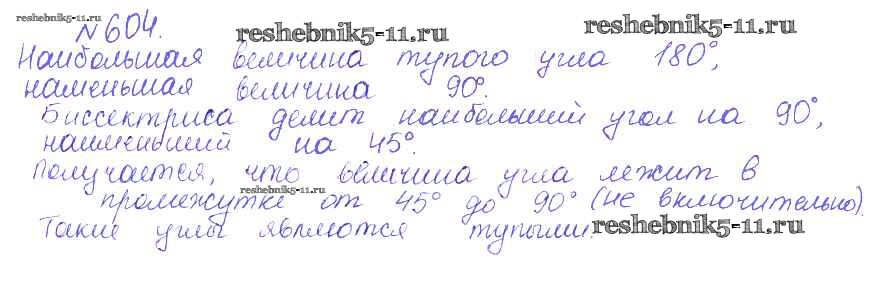 reshebnik5-11.ru
№604.
reshebnik5-11.ru
reshebnik5-11.ru
Наибольшая величина тупого угла 180°,
наменьшая величина 90°.
Биссектриса делит наибольший угол на 90°,
наименьший на 45°.
Получается, что величина угла лежит в
reshebnik5-11.ru
промежутке от 45° до 90° (не включительно).
Такие углы являются тупыми.
reshebnik5-11.ru